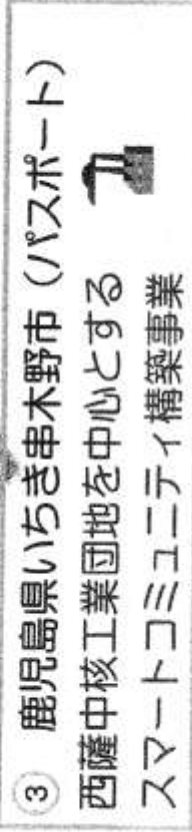 ③ 鹿児島県いちき串木野市（パスポート）
西薩中核工業団地を中心とする
スマートコミュニティ構築事業